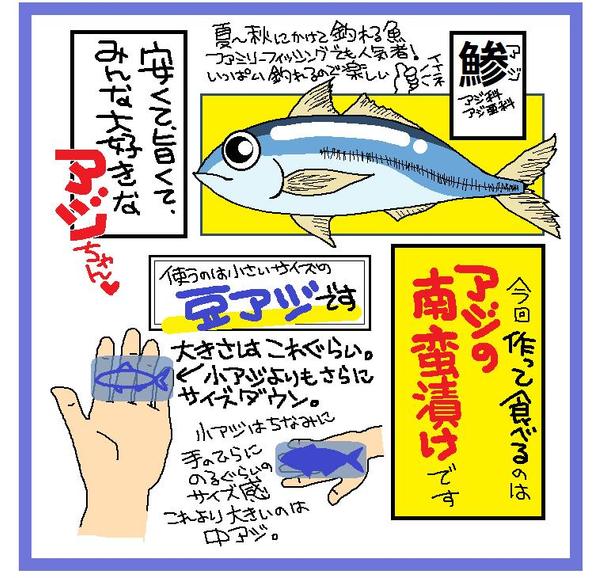 夏~秋にかけて釣れる魚
ファミリーフィッシングでも人気者!
いっぱい釣れるので楽しい
イイネ
鯵
アジ
アジ科
アジ亜科
安くて旨くて、
みんな大好きな
アジちゃん♥
使うのは小さいサイズの
豆アジです
大きさはこれぐらい。
←小アジよりもさらに
サイズダウン。
小アジはちなみに
手のひらに
のるぐらいの
サイズ感
これより大きいのは
中アジ。
今回作って食べるのは
アジの
南蛮漬け
です